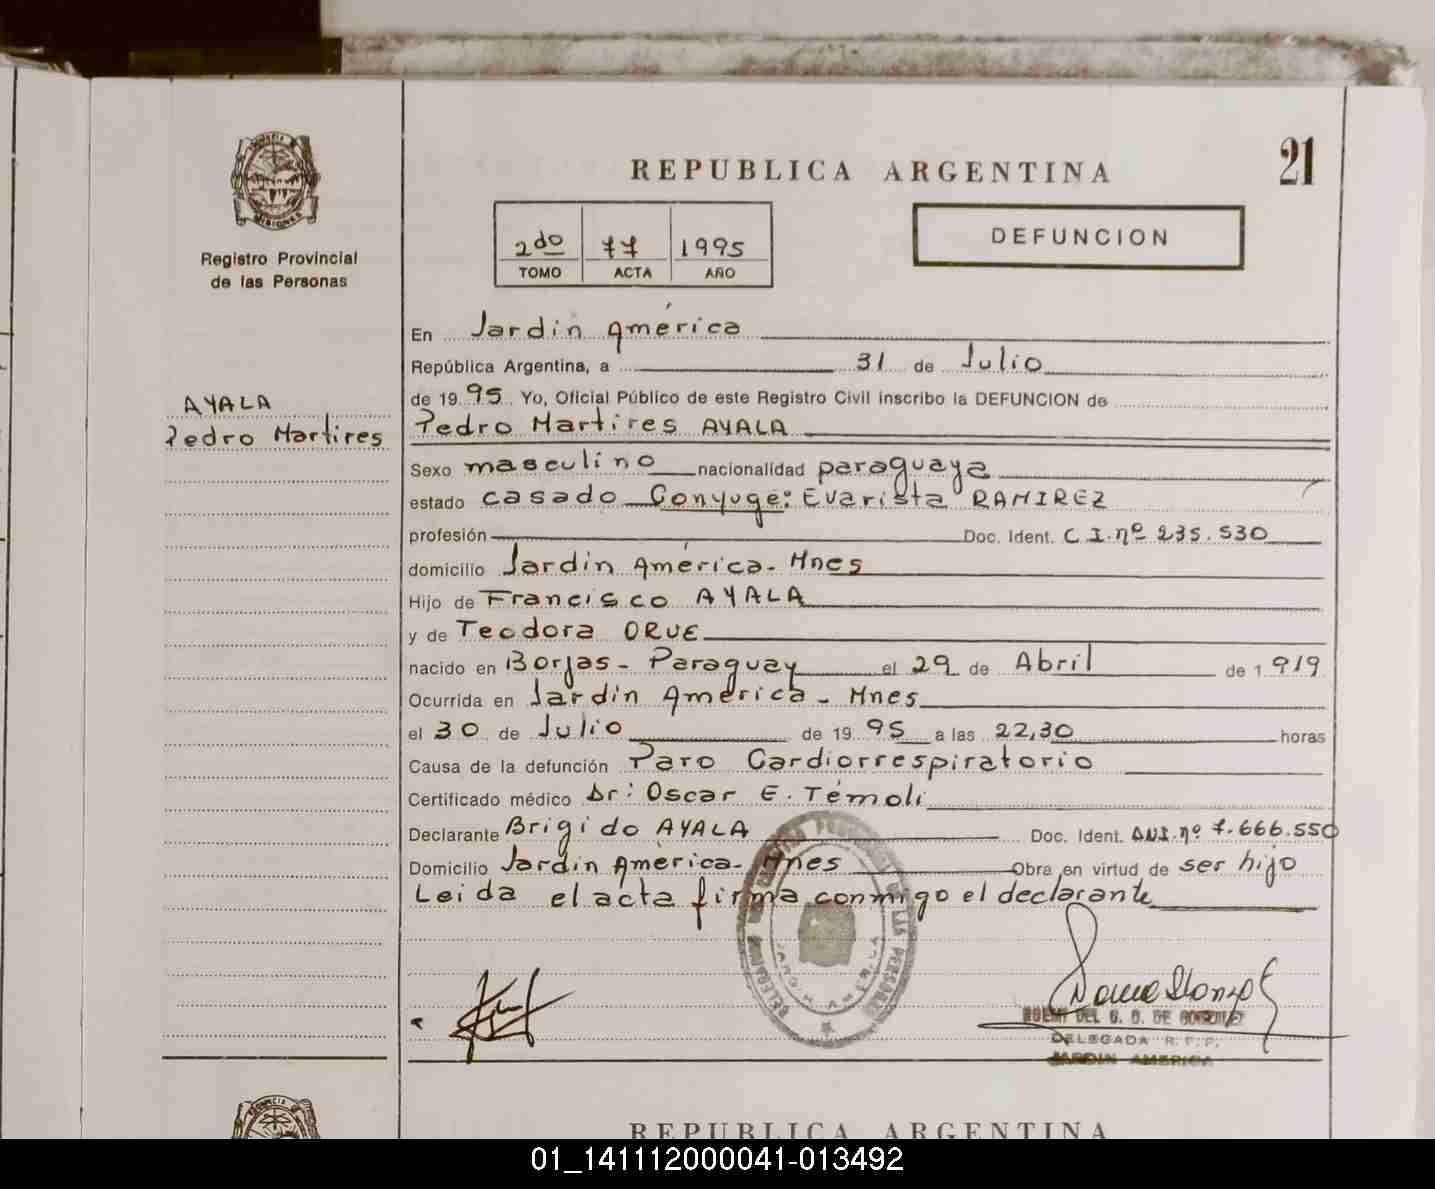 REPUBLICA ARGENTINA
21
MISIONES
Registro Provincial
de las Personas
2do 77 1995
TOMO ACTA AÑO
DEFUNCION
AYALA
Pedro Martires
En Jardín América
República Argentina, a 31 de Julio
de 1995 Yo, Oficial Público de este Registro Civil inscribo la DEFUNCION de
Pedro Martires AYALA
Sexo masculino nacionalidad paraguaya
estado casado Conyuge: Evarista RAMIREZ
profesión Doc. Ident. C.I.nº 235.530
domicilio Jardín América- Mnes
Hijo de Francisco AYALA
y de Teodora ORUE
nacido en Borjas- Paraguay el 29 de Abril de 1919
Ocurrida en Jardín América - Mnes
el 30 de Julio de 1995 a las 22,30 horas
Causa de la defunción Paro Cardiorrespiratorio
Certificado médico Dr: Oscar E. Témoli
Declarante Brigido AYALA Doc. Ident. DNI.nº 7.666.550
Domicilio Jardín América- Mnes Obra en virtud de ser hijo
Leida el acta firma conmigo el declarante
DELEGADA R.P.P.
JARDIN AMERICA
REPUBLICA ARGENTINA
01_141112000041-013492